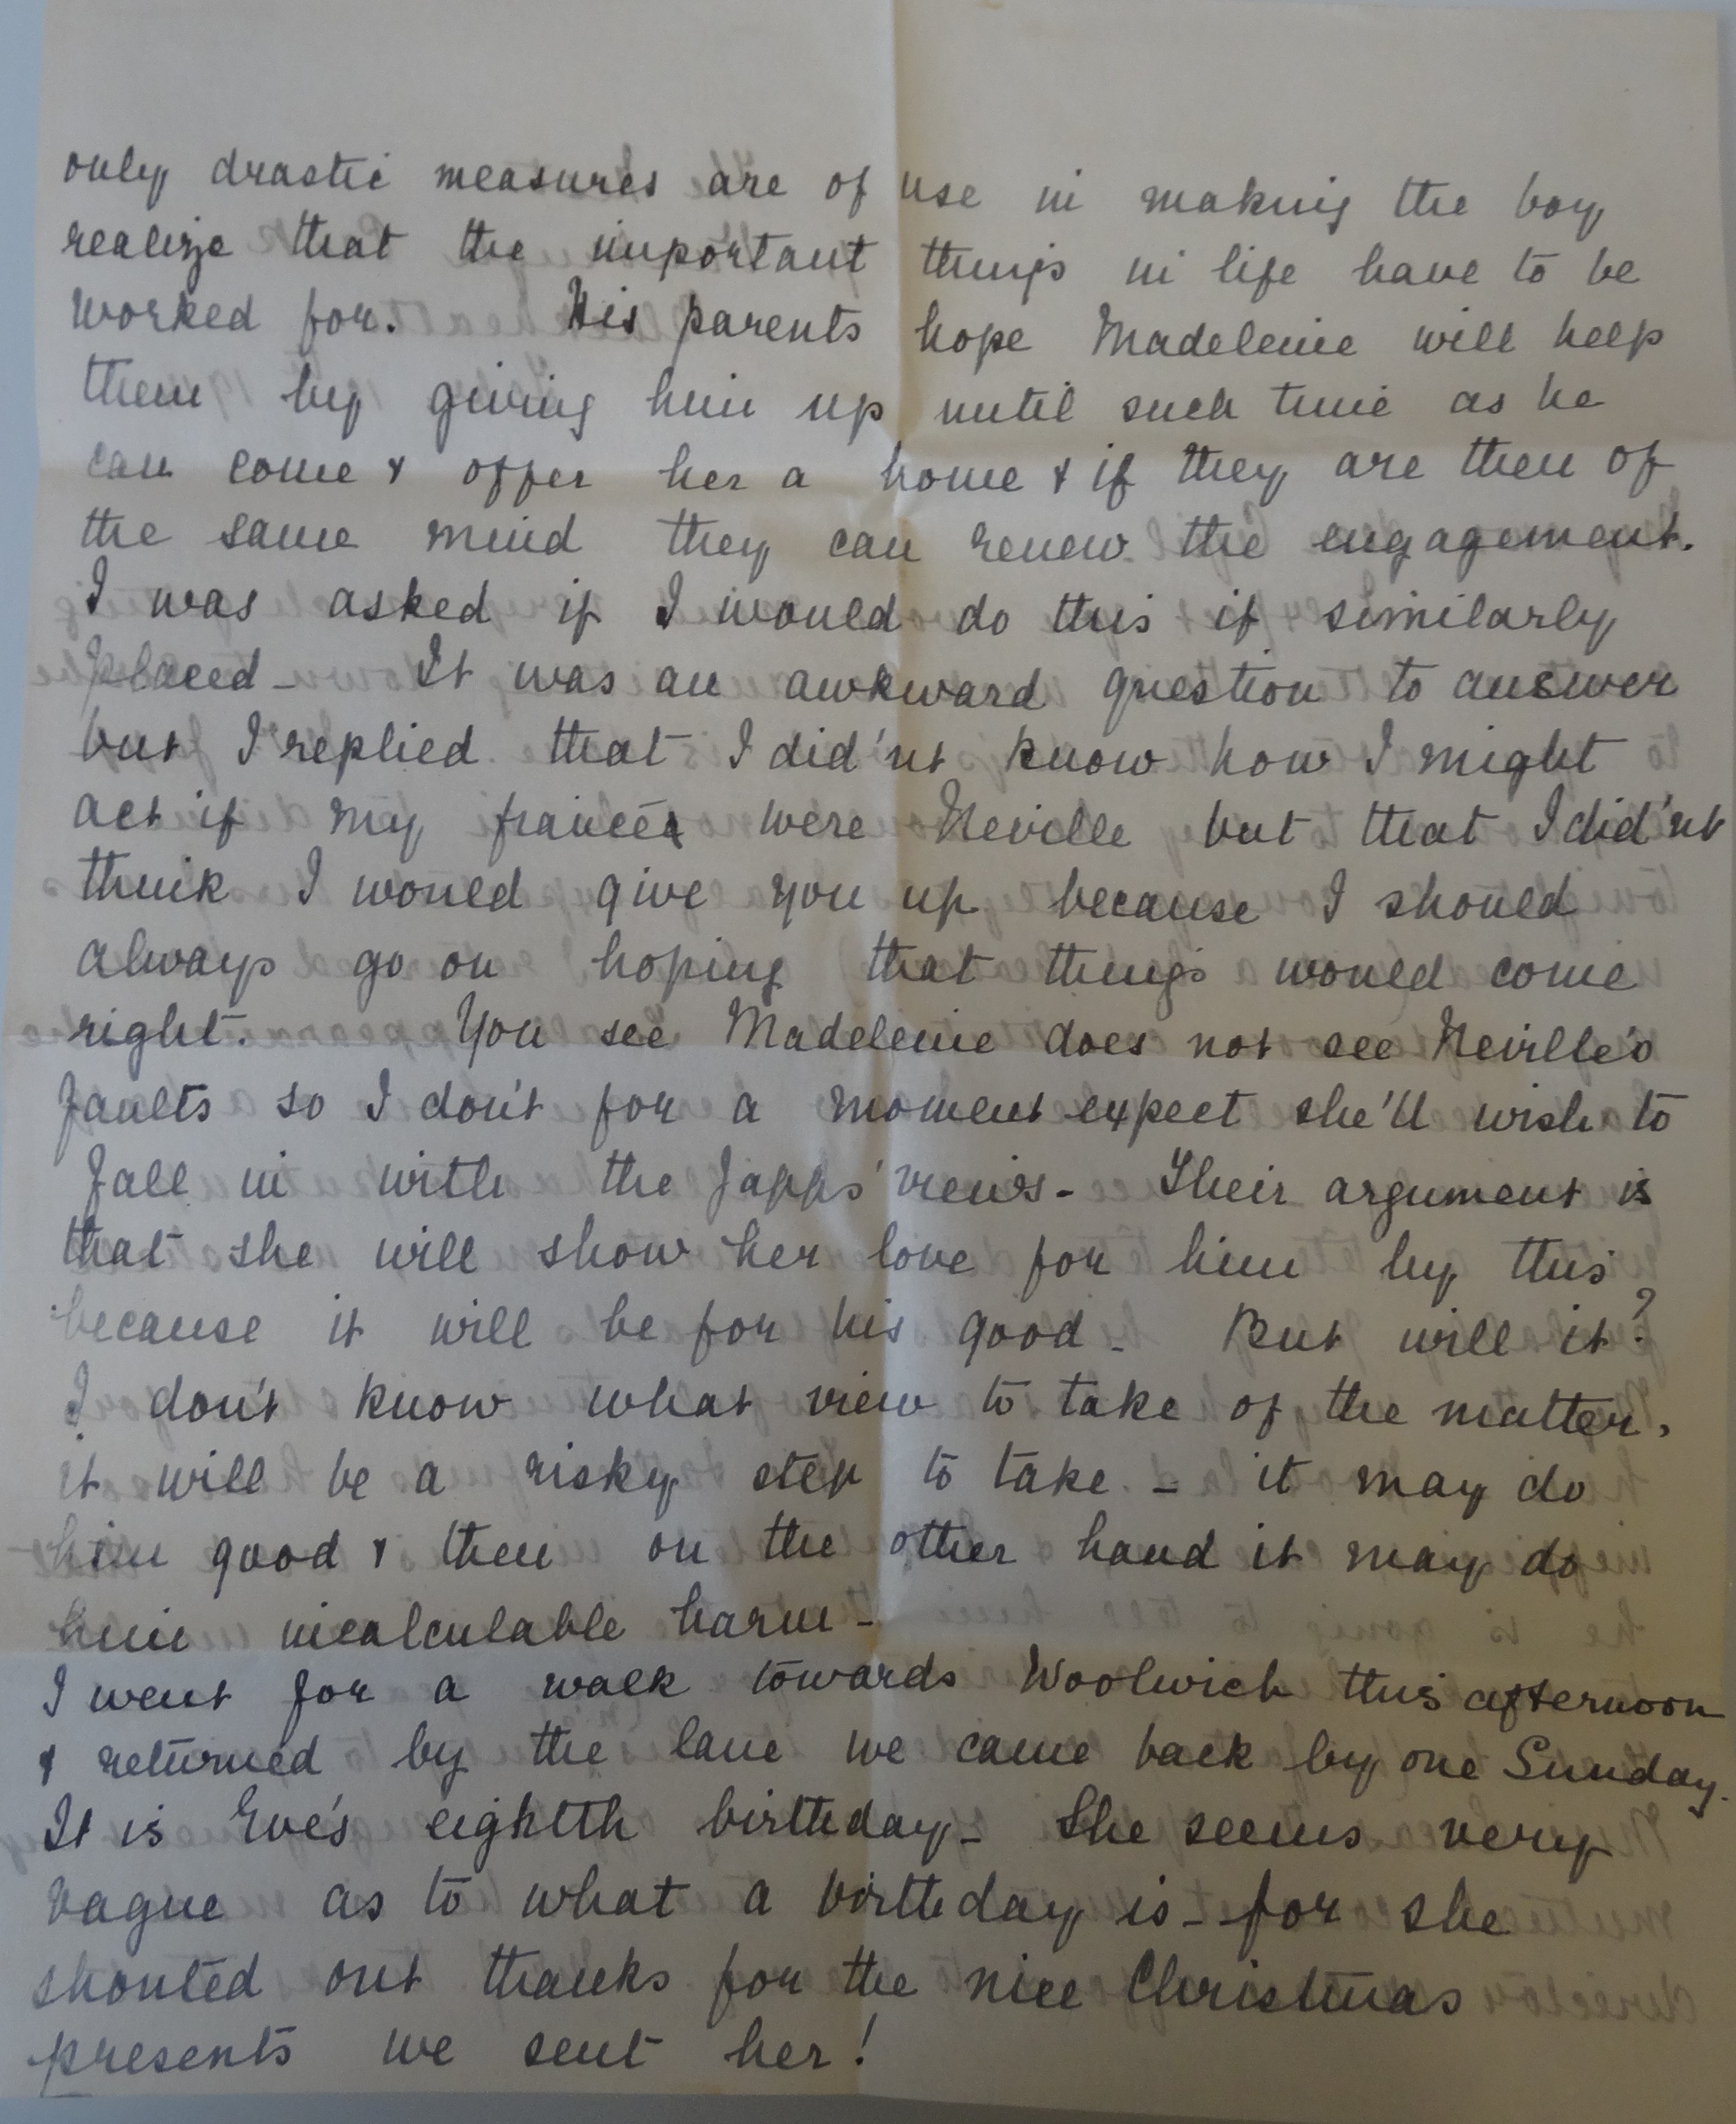 only drastic measures are of use in making the boy
realize that the important things in life have to be
worked for. His parents hope Madeleine will help
them by giving him up until such time as he
can come & offer her a home & if they are then of
the same mind they can renew the engagement.
I was asked if I would do this if similarly
placed - It was an awkward question to answer
but I replied that I did'nt know how I might
act if my fiancée were Neville but that I did'nt
think I would give you up because I should
always go on hoping that things would come
right. You see Madeleine does not see Neville's
faults so I don't for a moment expect she'll wish to
fall in with the Japps' views - Their argument is
that she will show her love for him by this
because it will be for his good - But will it?
I don't know what view to take of the matter,
it will be a risky step to take - it may do
him good & then on the other hand it may do
him incalculable harm -
I went for a walk towards Woolwich this afternoon
& returned by the lane we came back by one Sunday.
It is Eve's eighth birthday - She seems very
vague as to what a birthday is - for she
shouted out thanks for the nice Christmas
presents we sent her!